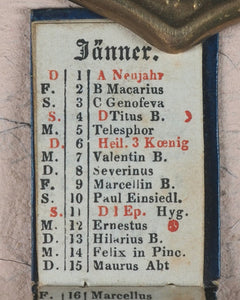 Jänner.
D. 1 A Neujahr
F. 2 B Macarius
S. 3 C Genofeva
S. 4 D Titus B.
M. 5 Telesphor
D. 6 Heil. 3 Kœnig
M. 7 Valentin B.
D. 8 Severinus
F. 9 Marcellin B.
S. 10 Paul Einsiedl.
S. 11 D 1 Ep. Hyg.
M. 12 Ernestus
D. 13 Hilarius B.
M. 14 Felix in Pinc.
D. 15 Maurus Abt
F. 16 Marcellus